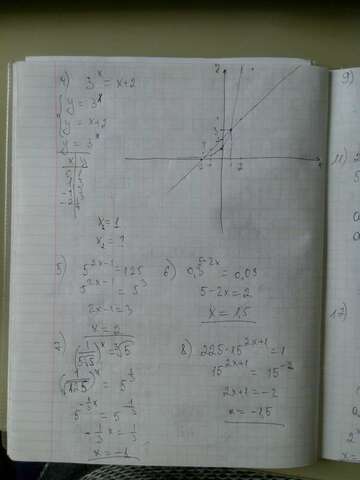 4) 3^x = x+2
y = 3^x
y = x+2
y = 3^x
x y
x₁ = 1
x₂ = ?
5) 5^(2x-1) = 125
5^(2x-1) = 5^3
2x-1 = 3
x = 2
6) 0,3^(5-2x) = 0,09
5-2x = 2
x = 1,5
7) (1/(5√5))^x = ³√5
(1/√125)^x = 5^(1/3)
-1/3 x = 1/3
x = -1
8) 225·15^(2x+1) = 1
15^(2x+1) = 15^(-2)
2x+1 = -2
x = -1,5
9)
11)
12)